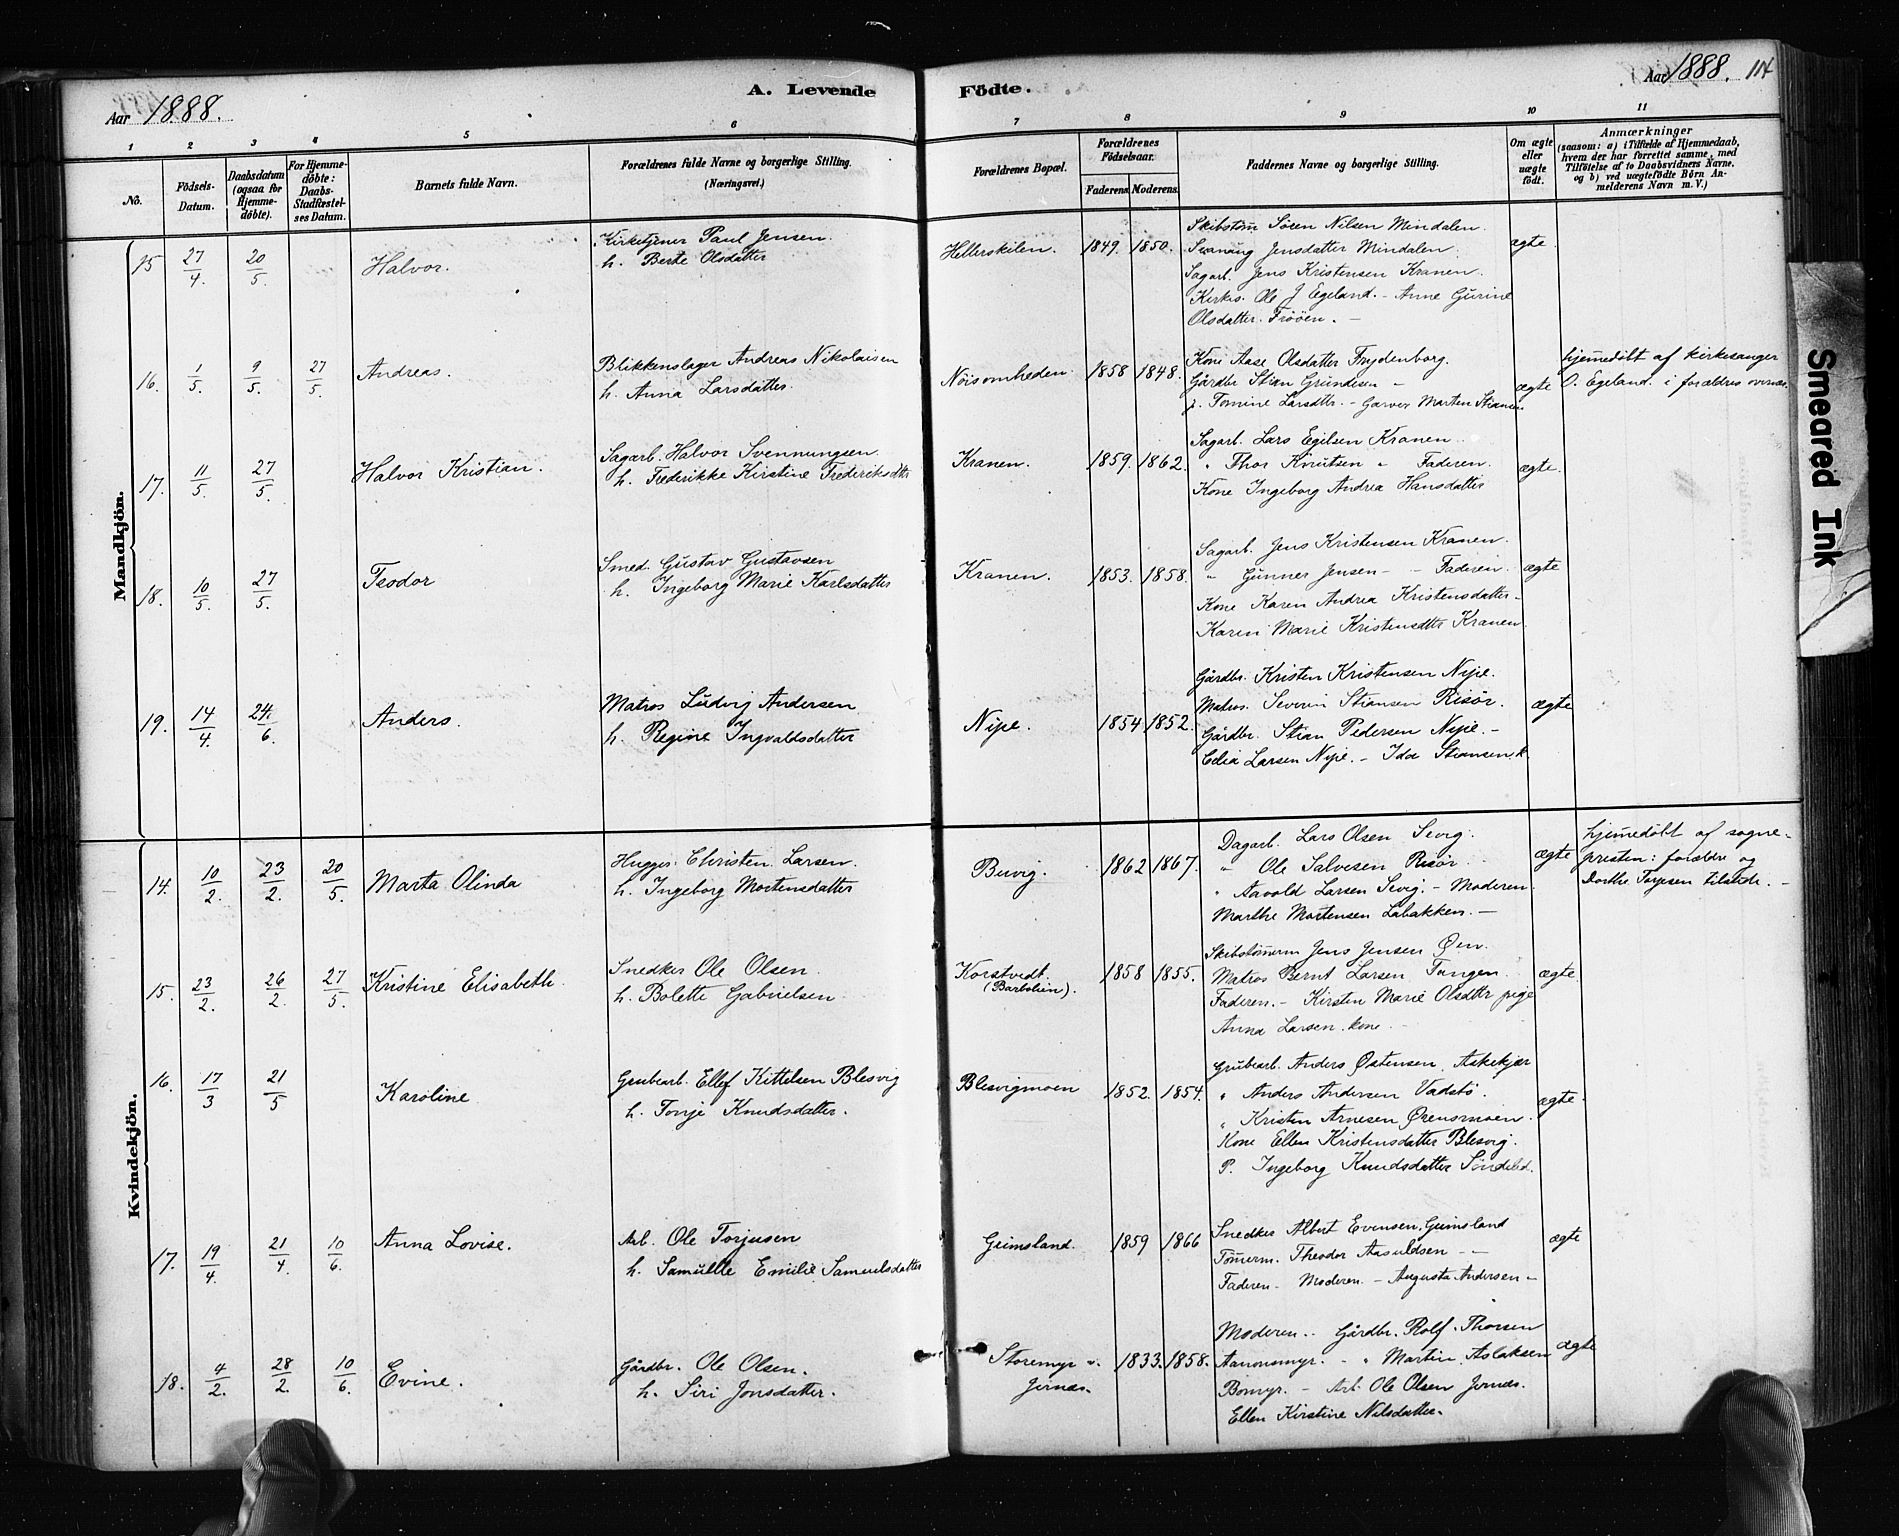 Aar 1888.
A. Levende Födte.
Aar 1888. 114
1 2 3 4 5 6 7 8 9 10 11
No.
Födsels-Datum.
Daabsdatum (ogsaa for Hjemmedöbte).
For Hjemmedöbte: Daabs-Stadfæstelses Datum.
Barnets fulde Navn.
Forældrenes fulde Navne og borgerlige Stilling. (Næringsvei.)
Forældrenes Bopæl.
Forældrenes Födselsaar.
Faderens. Moderens.
Faddernes Navne og borgerlige Stilling.
Om ægte eller uægte födt.
Anmærkninger
(saasom: a) i Tilfælde af Hjemmedaab,
hvem der har forrettet samme, med
Tilföielse af to Daabsvidners Navne,
og b) ved uægtefödte Börn Anmelderens Navn m. V.)
Mandkjön.
15 27/4 20/5 Halvor.
Kirketjener Paul Jensen.
h. Berte Olsdatter
Hellerskilen. 1849. 1850.
Skibstøm Søren Nilsen Mindalen
Svanaug Jensdatter Mindalen
Sagarb. Jens Kristensen Kranen.
Kirkes. Ole J Egeland. - Anne Gurine
Olsdatter Frøöen. -
ægte.
16. 1/5 9/5 27/5 Andreas.
Blikkenslager Andreas Nikolaisen
h. Anna Larsdatter
Nöisomheden. 1858 1848.
Kone Aase Olsdatter Frydenborg.
Gårdbr Stian Grundesen "
p. Tomine Larsdtr. - Garver Marten Stiansen
ægte
hjemmedöbt af kirkesanger
O. Egeland. i forældres overvær.
17. 11/5 27/5 Halvor Kristian.
Sagarb. Halvor Svennungsen
h. Frederikke Kirstine Frederiksdtr
Kranen. 1859. 1862.
Sagarb. Lars Egilsen Kranen
" Thor Knutsen " Faderen.
Kone Ingeborg Andrea Hansdatter
ægte
18. 10/5 27/5 Teodor
Smed. Gustav Gustavsen
h. Ingeborg Marie Karlsdatter
Kranen. 1853. 1858.
Sagarb. Jens Kristensen Kranen.
" Gunner Jensen - - Faderen.
Kone Karen Andrea Kristensdatter -
Karen Marie Kristensdtr Kranen
ægte
19. 14/4 24/6 Anders.
Matros Ludvig Andersen
h. Regine Ingvaldsdatter
Nipe. 1854 1852.
Gårdbr. Kristen Kristensen Nipe.
Matros. Severin Stiansen Risör.
Gårdbr. Stian Pedersen Nipe. -
Celia Larsen Nipe. - Ida Stiansen k.
ægte
Kvindekjön.
14. 10/2. 23/2. 20/5. Marta Olinda
Hugger Christen Larsen.
h. Ingeborg Mortensdatter
Buvig. 1862 1867.
Dagarb. Lars Olsen Sevig.
" Ole Salvesen Risör
" Aavold Larsen Sevig. - Moderen.
Marthe Mortensen Labakken. -
ægte
hjemmedöbt af sogne-
presten: forældre og
Dorthe Terjesen tilstede. -
15. 23/2. 26/2. 27/5. Kristine Elisabeth.
Snedker Ole Olsen.
h. Bolette Gabrielsen
Korstvedt. (Barbolien). 1858 1855.
Skibstömerm Jens Jensen Öen.
Matros Bernt Larsen Tangen.
Faderen. - Kirsten Marie Olsdtr pige
Anna Larsen. kone -
ægte
16. 17/3 21/5 Karoline
Grubearb. Ellef Kittelsen Blesvig
h. Tonje Knudsdatter.
Blesvigmoen 1852. 1854.
Grubearb. Anders Östensen Askekjær
" Anders Andersen Vadstö.
" Kristen Arnesen Örensmoen.
Kone Ellen Kristensdatter Blesvig.
P. Ingeborg Knudsdatter Söndeled.
ægte
17. 19/4. 21/4. 10/6. Anna Lovise.
Arb. Ole Torjusen
h. Samuline Emilie Samuelsdatter
Geimsland. 1859 1866
Snedker Albert Evensen Geimsland
Tömerm. Theodor Aasuldsen - -
Faderen - Moderen. - Augusta Andersen -
ægte
18. 4/2. 28/2. 10/6. Evine.
Gårdbr. Ole Olsen.
h. Siri Jonsdatter.
Storemyr v. Jernæs. 1833. 1858.
Moderen .. Gårdbr. Rolf Thorsen
Aanonsmyr. - " Martin Aslaksen
Bomyr. - Arb Ole Olsen Jernæs.
Ellen Kirstine Nilsdatter.
ægte
Smeared Ink